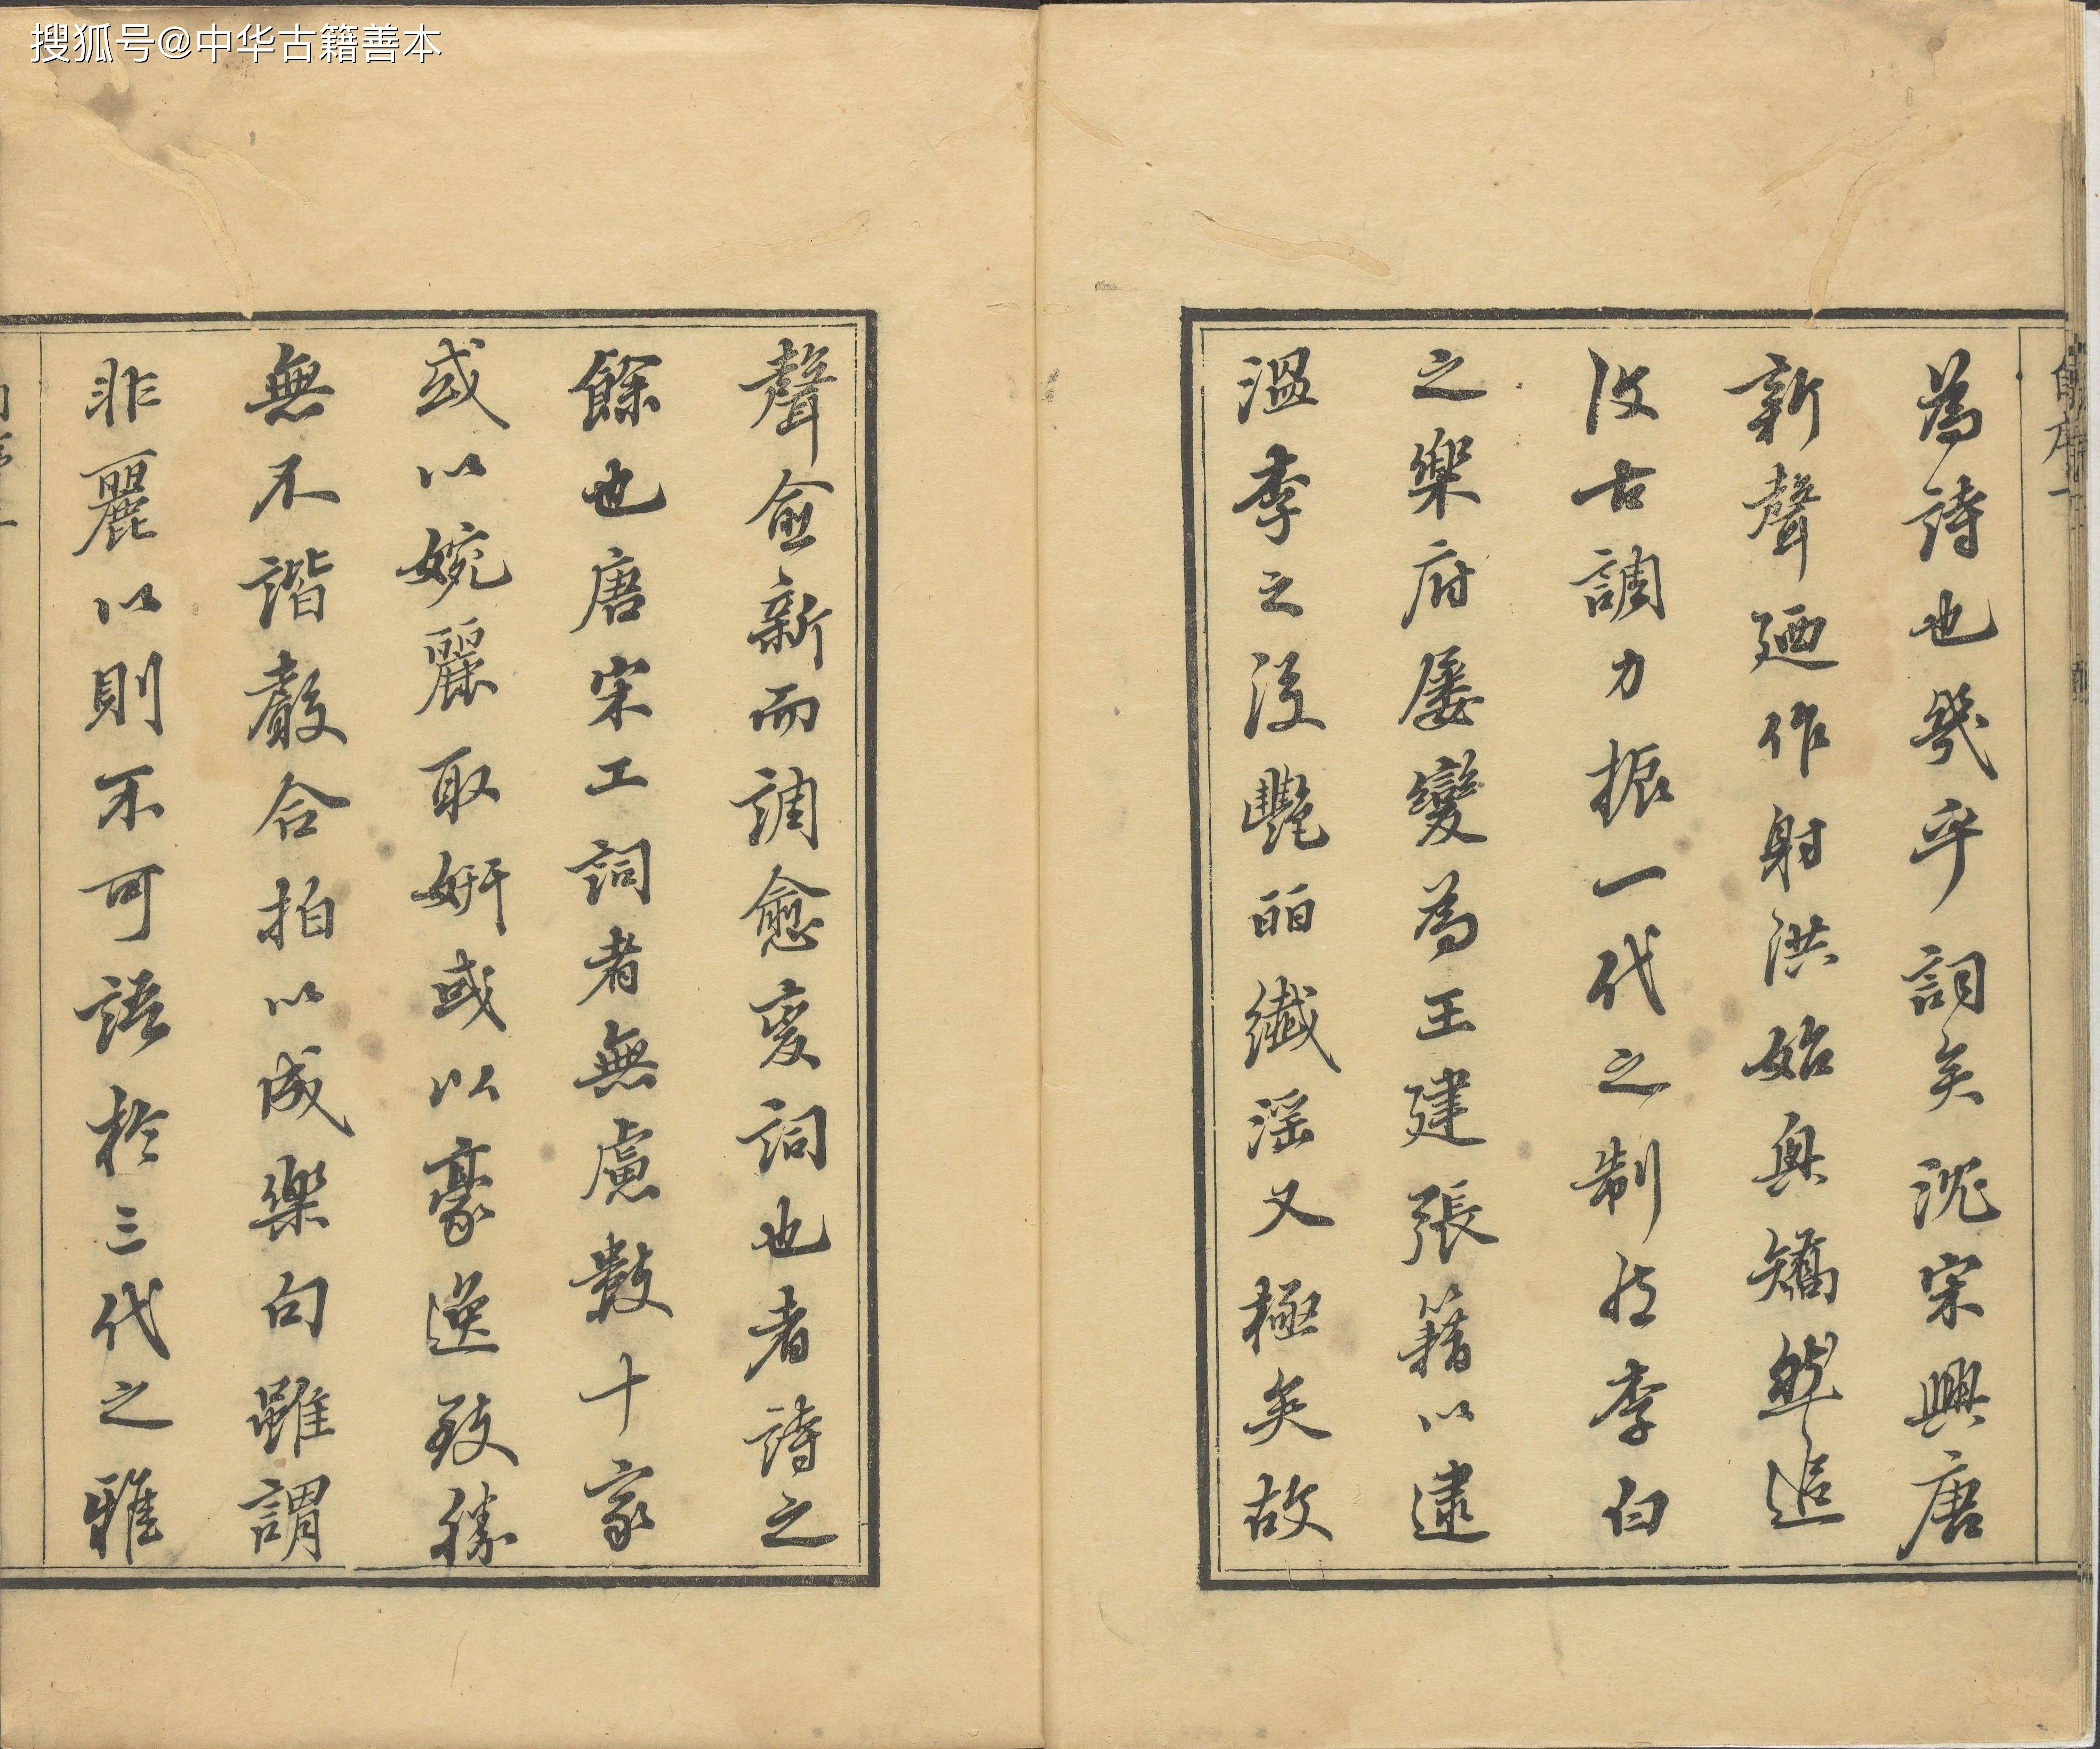 搜狐号@中华古籍善本
為詩也幾乎詞矣沈宋興唐
新聲廼作射洪始興矯然追
復古調力振一代之制於李白
之樂府屡變為王建張籍以逮
溫李之後艷皕纖滛又極矣故
聲愈新而調愈変詞也者詩之
餘也唐宋工詞者無慮數十家
或以婉麗取姸或以豪逸致勝
無不諧聲合拍以成樂句雖謂
非麗以則不可語於三代之雅